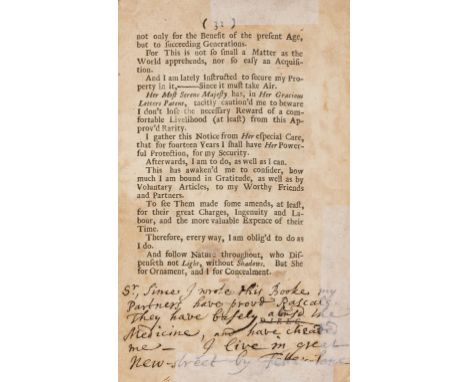 ( 32 )
not only for the Benefit of the present Age,
but to succeeding Generations.
For This is not so small a Matter as the
World apprehends, nor so easy an Acquisi-
tion.
And I am lately Instructed to secure my Pro-
perty in it,——Since it must take Air.
Her Most Serene Majesty has, in Her Gracious
Letters Patent, tacitly caution'd me to beware
I don't lose the necessary Reward of a com-
fortable Livelihood (at least) from this Ap-
prov'd Rarity.
I gather this Notice from Her especial Care,
that for fourteen Years I shall have Her Power-
ful Protection, for my Security.
Afterwards, I am to do, as well as I can.
This has awaken'd me to consider, how
much I am bound in Gratitude, as well as by
Voluntary Articles, to my Worthy Friends
and Partners.
To see Them made some amends, at least,
for their great Charges, Ingenuity and La-
bour, and the more valuable Expence of their
Time.
Therefore, every way, I am oblig'd to do as
I do.
And follow Nature throughout, who Dis-
penseth not Light, without Shadows. But She
for Ornament, and I for Concealment.
Sr, Since I wrote this Booke my
Partners have provd Rascals
They have basely abused the
Medicine, and have cheated
me — I live in great
New-street by Fetter-Lane